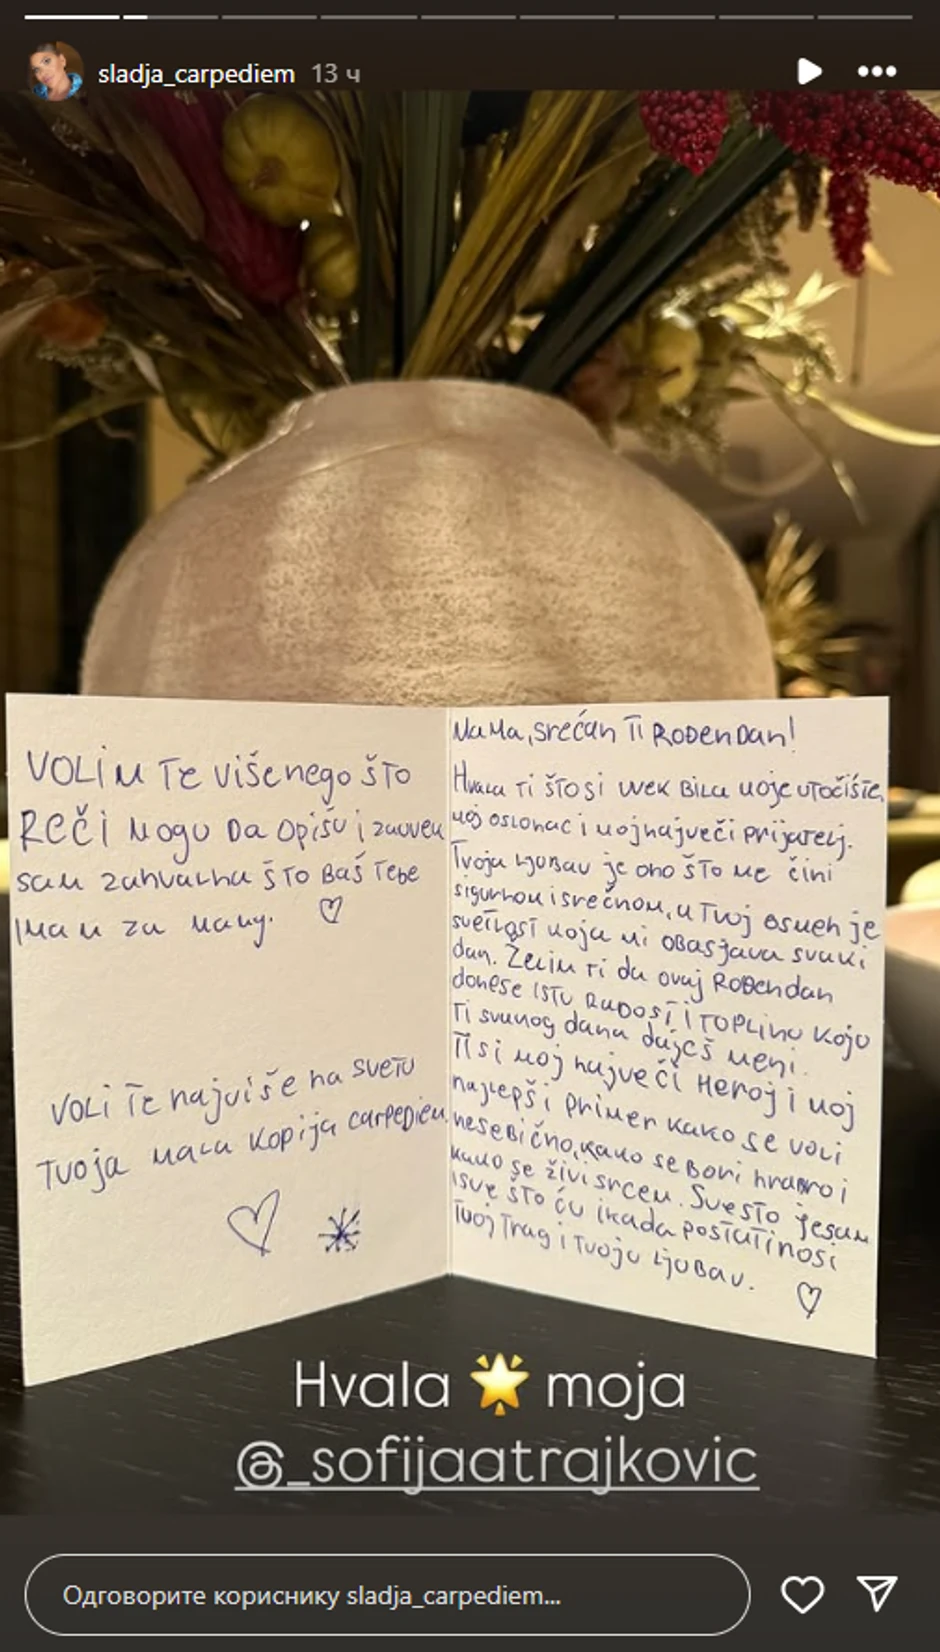 sladja_carpediem 13 ч
VOLIM Te višenego što
Reči mogu da opišu i zauvek
sam zahvalna što baš Tebe
Imam za mamu. ♡
VOLI Te najviše na svetu
Tvoja mala kopija carpediem.
Mama, srećan Ti Rođendan!
Hvala ti što si uvek bila moje utočište,
moj oslonac i moj najveći prijatelj.
Tvoja ljubav je ono što me čini
sigurnom i srećnom, a Tvoj osmeh je
svetlost koja mi obasjava svaki
dan. Želim ti da ovaj Rođendan
donese istu radost i toplinu koju
Ti svakog dana daješ meni.
Ti si moj najveći Heroj i moj
najlepši primer kako se voli
nesebično, kako se bori hrabro i
kako se živi srcem. Sve što jesam
i sve što ću ikada postati nosi
Tvoj Trag i Tvoju ljubav. ♡
Hvala 🌟 moja
@_sofijaatrajkovic
Одговорите кориснику sladja_carpediem...